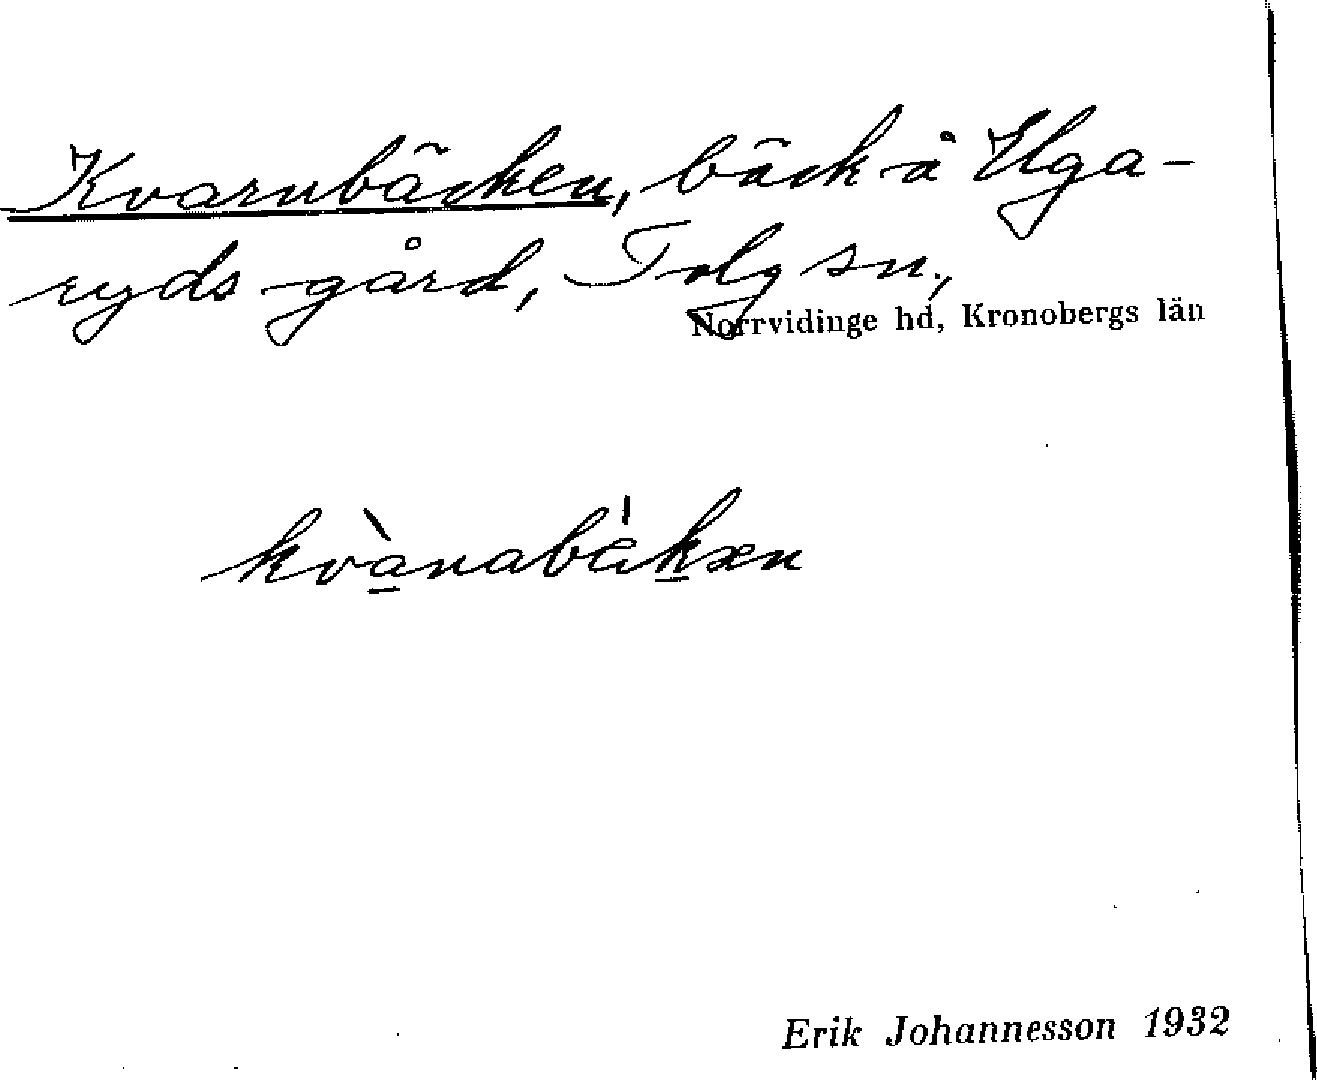 Kvarnbäcken, bäck å Ilga-
ryds gård, Tolg sn.,
Norrvidinge hd, Kronobergs län
kvànabäkæn
Erik Johannesson 1932